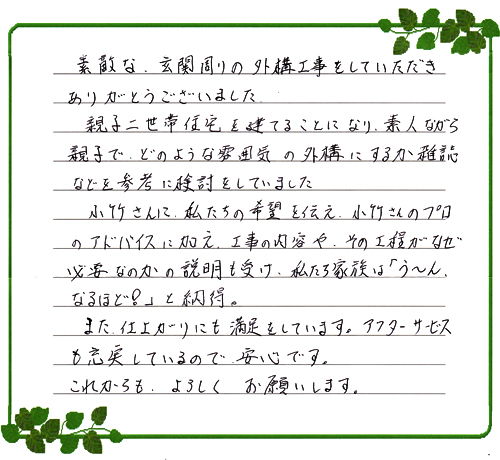 素敵な、玄関周りの外構工事をしていただき
ありがとうございました。
親子二世帯住宅を建てることになり、素人ながら
親子で、どのような雰囲気の外構にするか雑誌
などを参考に検討をしていました
小竹さんに、私たちの希望を伝え、小竹さんのプロ
のアドバイスに加え、工事の内容や、その工程がなぜ
必要なのかの説明も受け、私たち家族は「う～ん、
なるほど!」と納得。
また、仕上がりにも満足をしています。アフターサービス
も充実しているので、安心です。
これからも、よろしくお願いします。